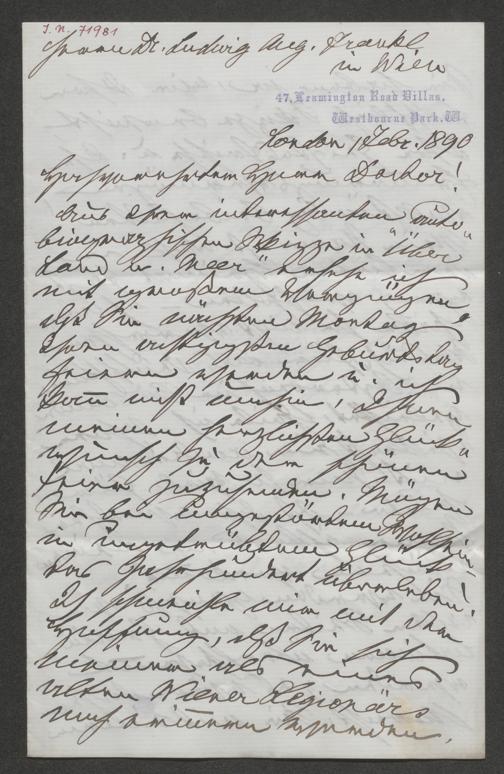 I. N. 71981
Herrn Dr. Ludwig Aug. Frankl
in Wien
47, Leamington Road Villas,
Westbourne Park, W.
London 1 Febr. 1890
Hochverehrtem Herrn Doctor!
Aus Ihrer interessanten Auto-
biografischen Skizze in "Über
Land u. Meer" ersehe ich
mit grossem Vergnügen,
daß Sie nächsten Montag
Ihren achtzigsten Geburtstag
feiern werden u. ich
kann nicht umhin, Ihnen
meinen herzlichsten Glück-
wunsch zu dem schönen
Feier zuzusenden. Mögen
Sie bei ungestörtem Wohlsein
in ungetrübtem Glück
das Jahrhundert überleben!
Ich schmeichle mir mit der
Hoffnung, daß Sie sich
meiner als eines
alten Wiener Legionärs
noch erinnern werden,